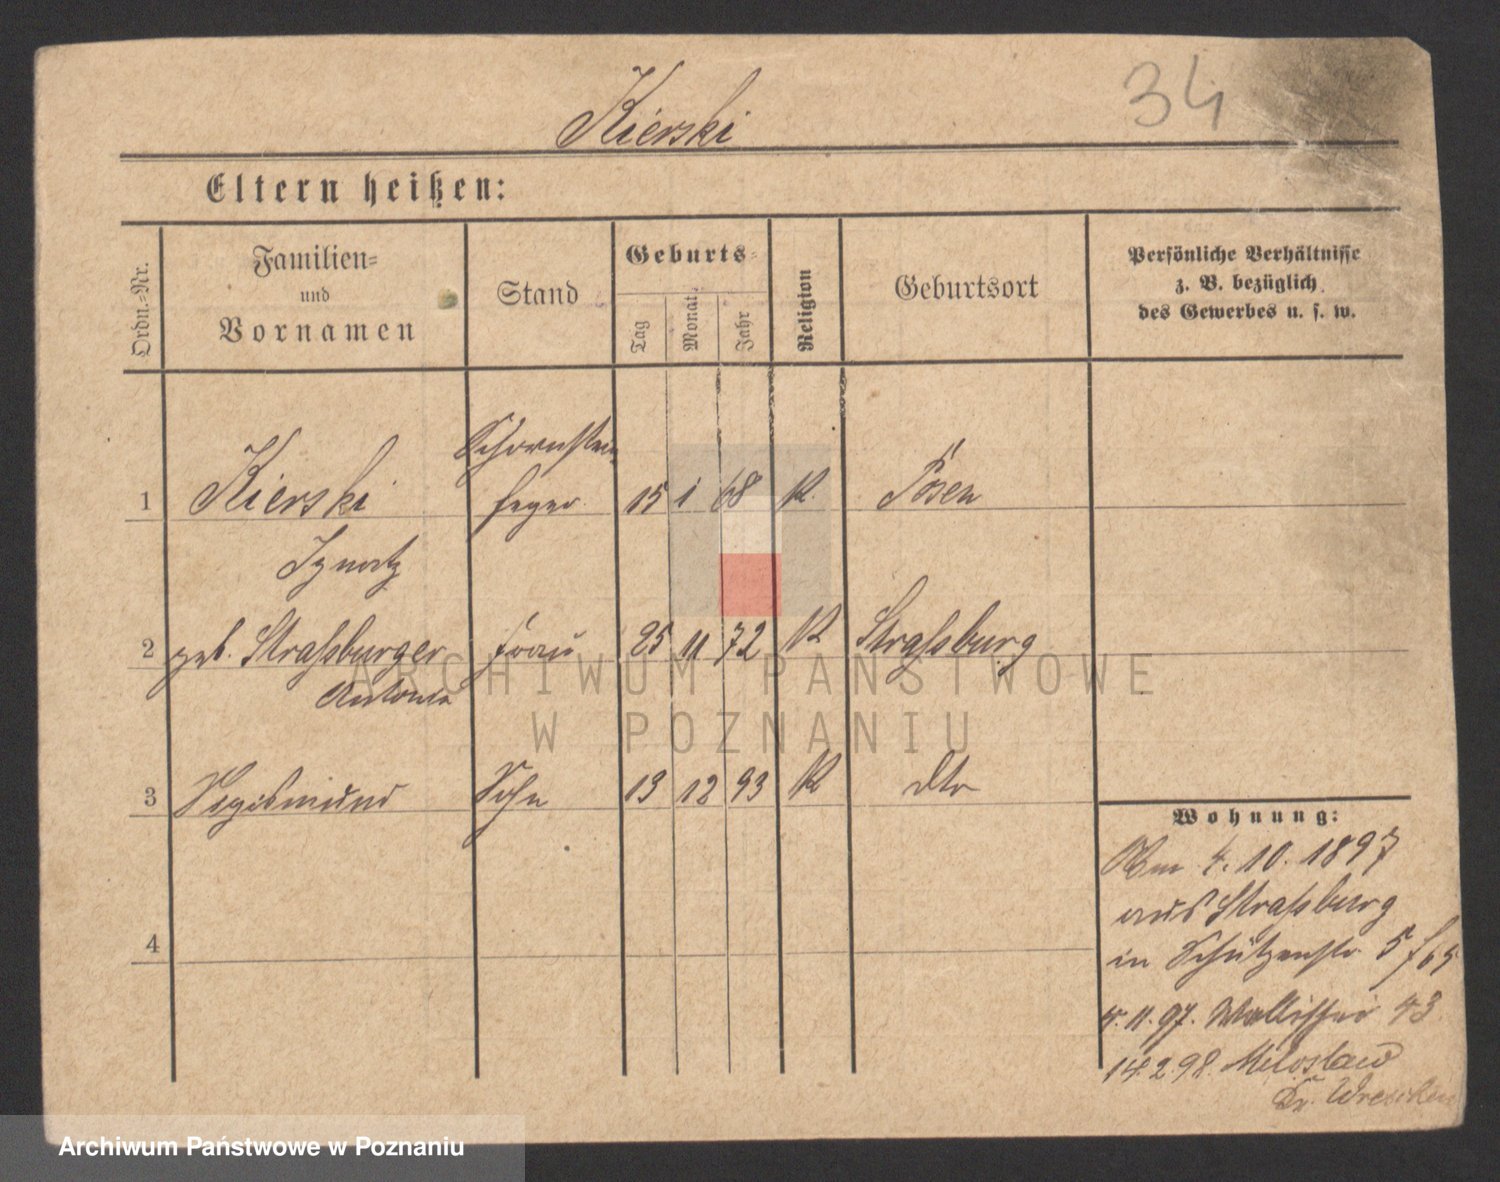 34
Kierski
Eltern heißen:
Ordn.-Nr.
Familien-
und
Vornamen
Stand
Geburts-
Tag
Monat
Jahr
Religion
Geburtsort
Persönliche Verhältnisse
z. B. bezüglich
des Gewerbes u. s. w.
Schornstein
1 Kierski feger 15 1 68 K. Posen
Ignatz
2 geb. Straßburger Frau 25 11 72 K Straßburg
Antonie
ARCHIWUM PAŃSTWOWE
W POZNANIU
3 Sigismund Sohn 13 12 93 K dto
4
Wohnung:
Am 4.10.1897
aus Straßburg
in Schützenstr 5
4.11.97. Wallischei 43
14.2.98. Miloslaw
Kr. Wreschen
Archiwum Państwowe w Poznaniu